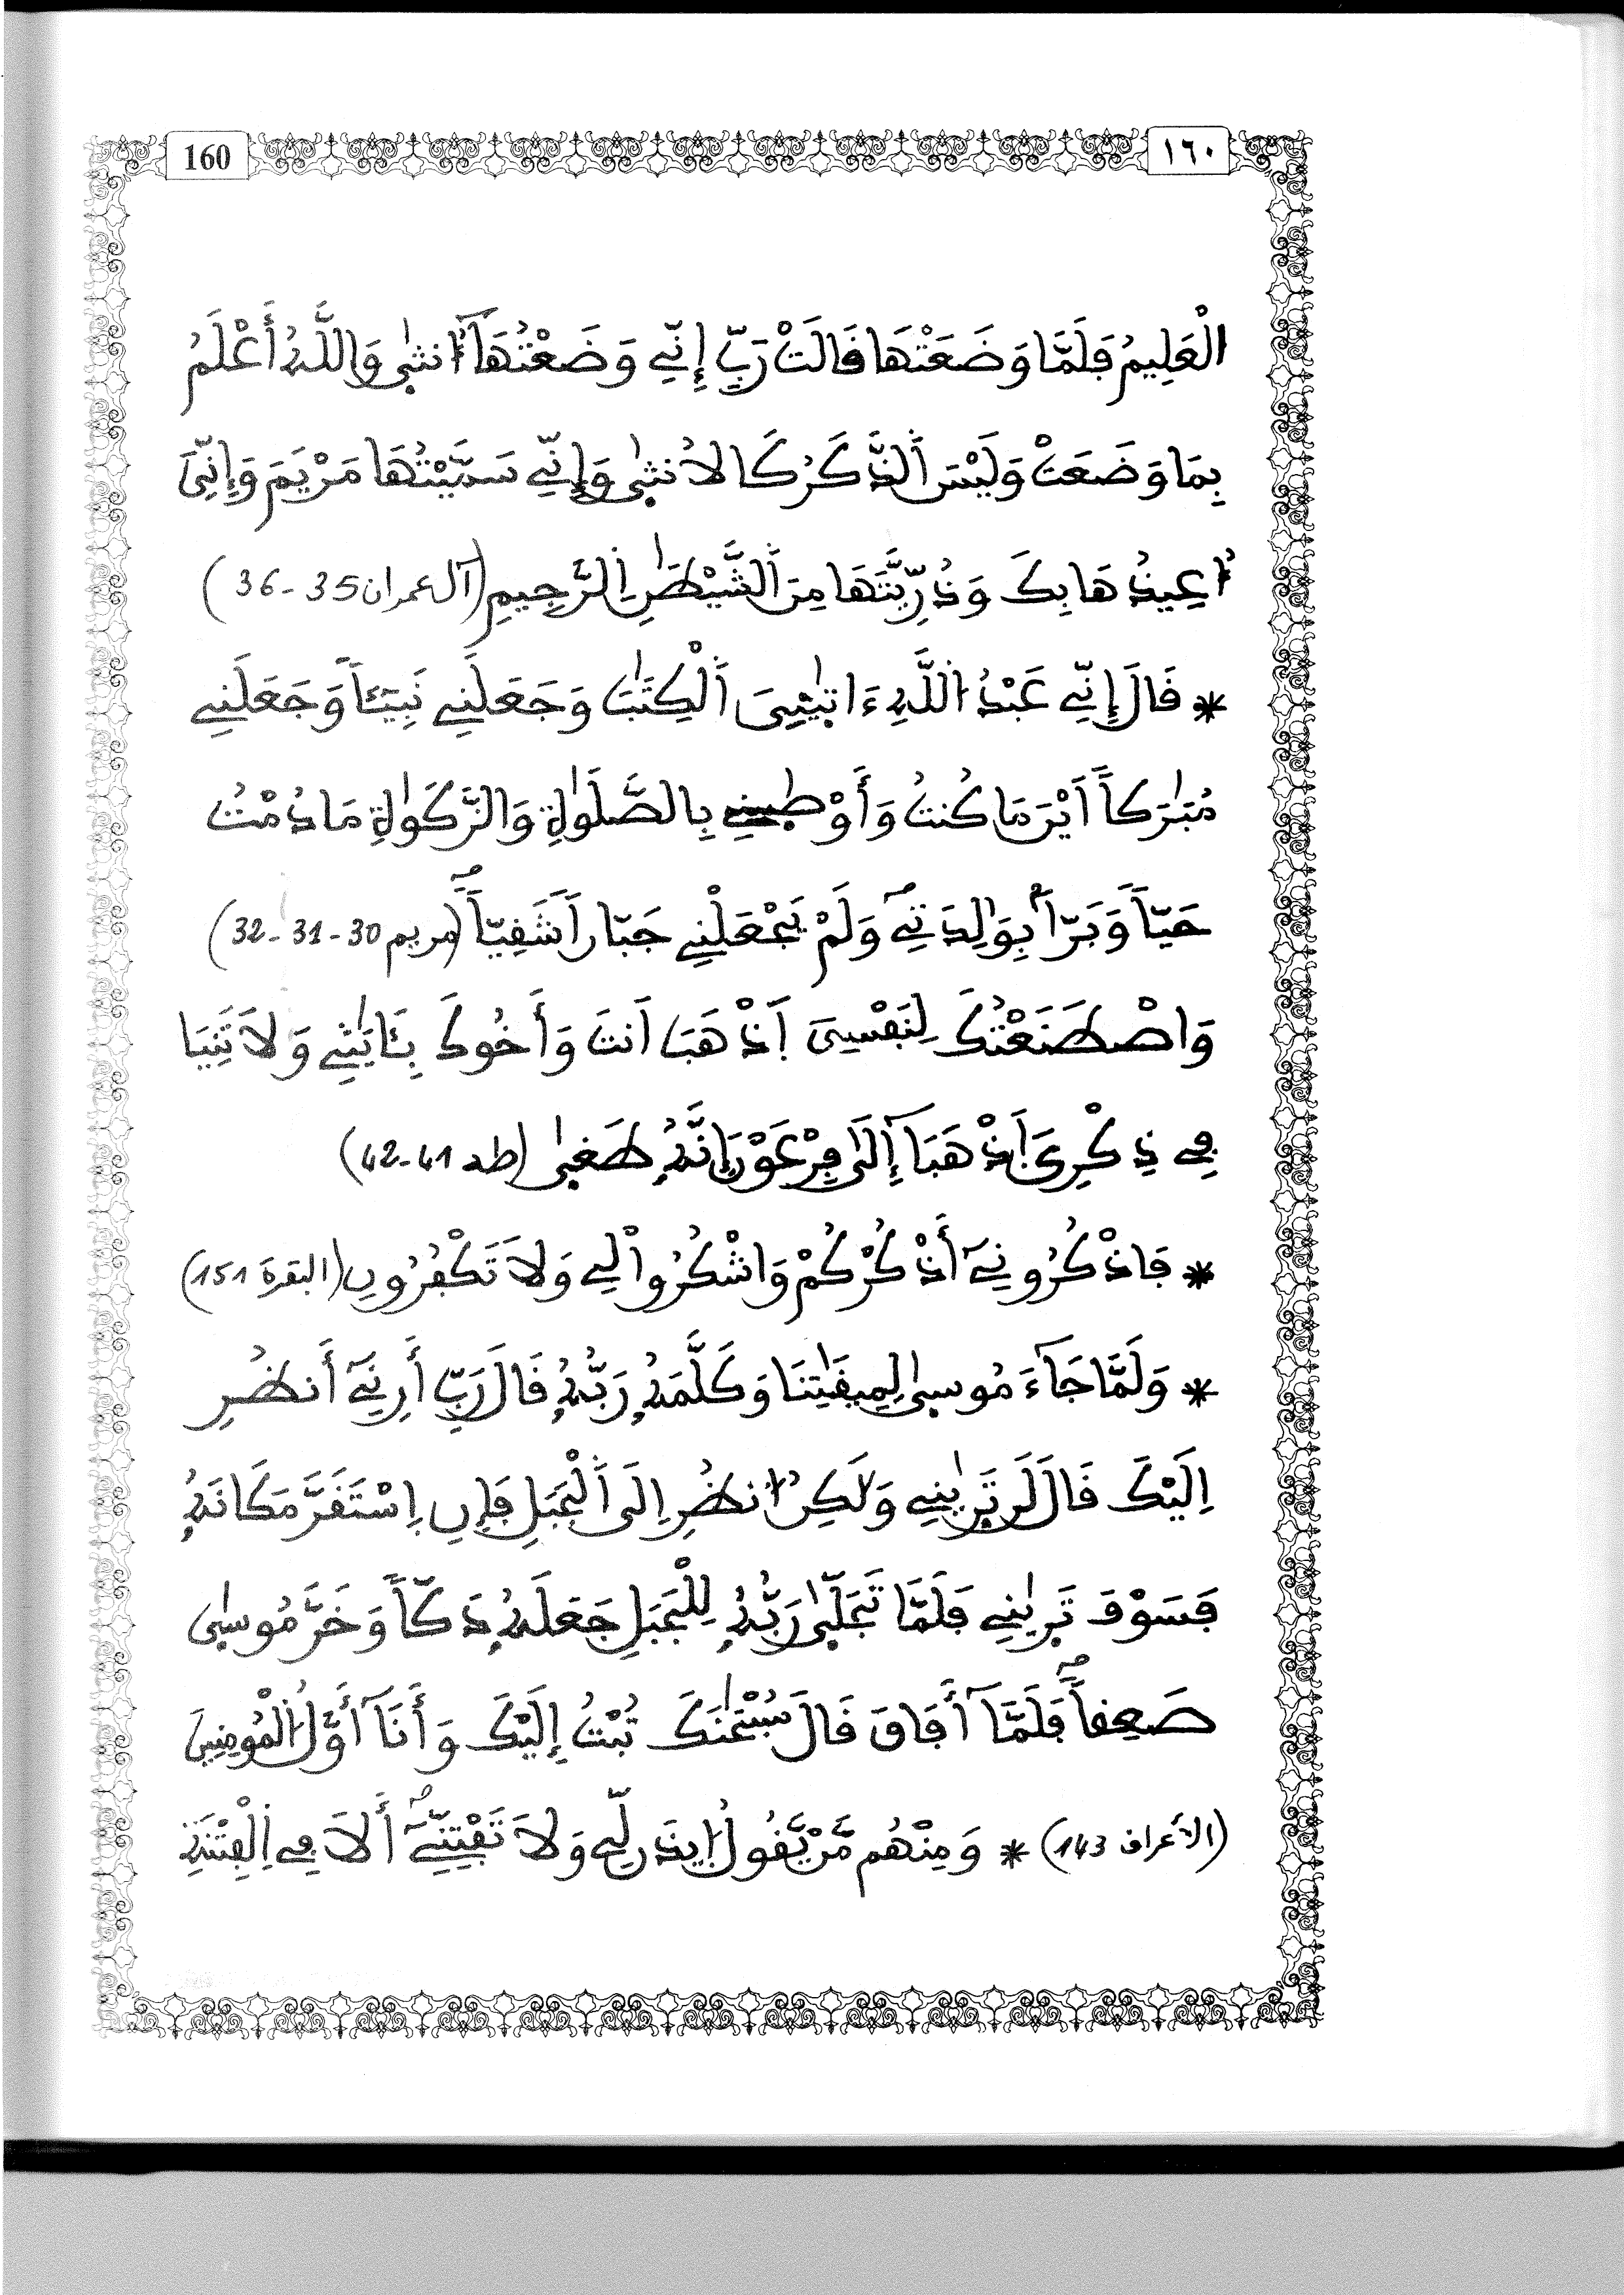 160 ١٦٠
الْعَلِيمُ فَلَمَّا وَضَعَتْهَا قَالَتْ رَبِّ إِنِّي وَضَعْتُهَآ أُنثىٰ وَاللَّهُ أَعْلَمُ
بِمَا وَضَعَتْ وَلَيْسَ اَلذَّكَرُ كَالاُنثىٰ وَإِنِّي سَمَّيْتُهَا مَرْيَمَ وَإِنِّيَ
أُعِيذُهَا بِكَ وَذُرِّيَّتَهَا مِنَ اَلشَّيْطَٰنِ اِلرَّجِيمِ (آل عمران 35 - 36)
* قَالَ إِنِّي عَبْدُ اللَّهِ ءَاتَيٰنِيَ اَلْكِتَٰبَ وَجَعَلَنِي نَبِيـًٔا وَجَعَلَنِي
مُبَٰرَكاً اَيْنَ مَا كُنتُ وَأَوْصَٰنِي بِالصَّلَوٰةِ وَالزَّكَوٰةِ مَا دُمْتُ
حَيّاً وَبَرّاً بِوَٰلِدَتِي وَلَمْ يَجْعَلْنِي جَبَّاراً شَقِيّاً (مريم 30 - 31 - 32)
وَاصْطَنَعْتُكَ لِنَفْسِيَ اَذْهَبَ اَنتَ وَأَخُوكَ بِـَٔايَٰتِي وَلَا تَنِيَا
فِي ذِكْرِيَ اَذْهَبَآ إِلَىٰ فِرْعَوْنَ إِنَّهُ طَغىٰ (طه 41 - 42)
* فَاذْكُرُونِيٓ أَذْكُرْكُمْ وَاشْكُرُواْ لِي وَلَا تَكْفُرُونِ (البقرة 151)
* وَلَمَّا جَآءَ مُوسىٰ لِمِيقَٰتِنَا وَكَلَّمَهُ رَبُّهُ قَالَ رَبِّ أَرِنِيٓ أَنظُرِ
اِلَيْكَ قَالَ لَن تَرىٰنِي وَلَٰكِنُ اُنظُرِ اِلَى اَلْجَبَلِ فَإِنِ اِسْتَقَرَّ مَكَانَهُ
فَسَوْفَ تَرىٰنِي فَلَمَّا تَجَلّىٰ رَبُّهُ لِلْجَبَلِ جَعَلَهُ دَكّاً وَخَرَّ مُوسىٰ
صَعِقاً فَلَمَّآ أَفَاقَ قَالَ سُبْحَٰنَكَ تُبْتُ إِلَيْكَ وَأَنَآ أَوَّلُ اُلْمُومِنِينَ
(الأعراف 143) * وَمِنْهُم مَّنْ يَّقُولُ اِيذَن لِّي وَلَا تَفْتِنِّيٓ أَلَا فِي اِلْفِتْنَةِ